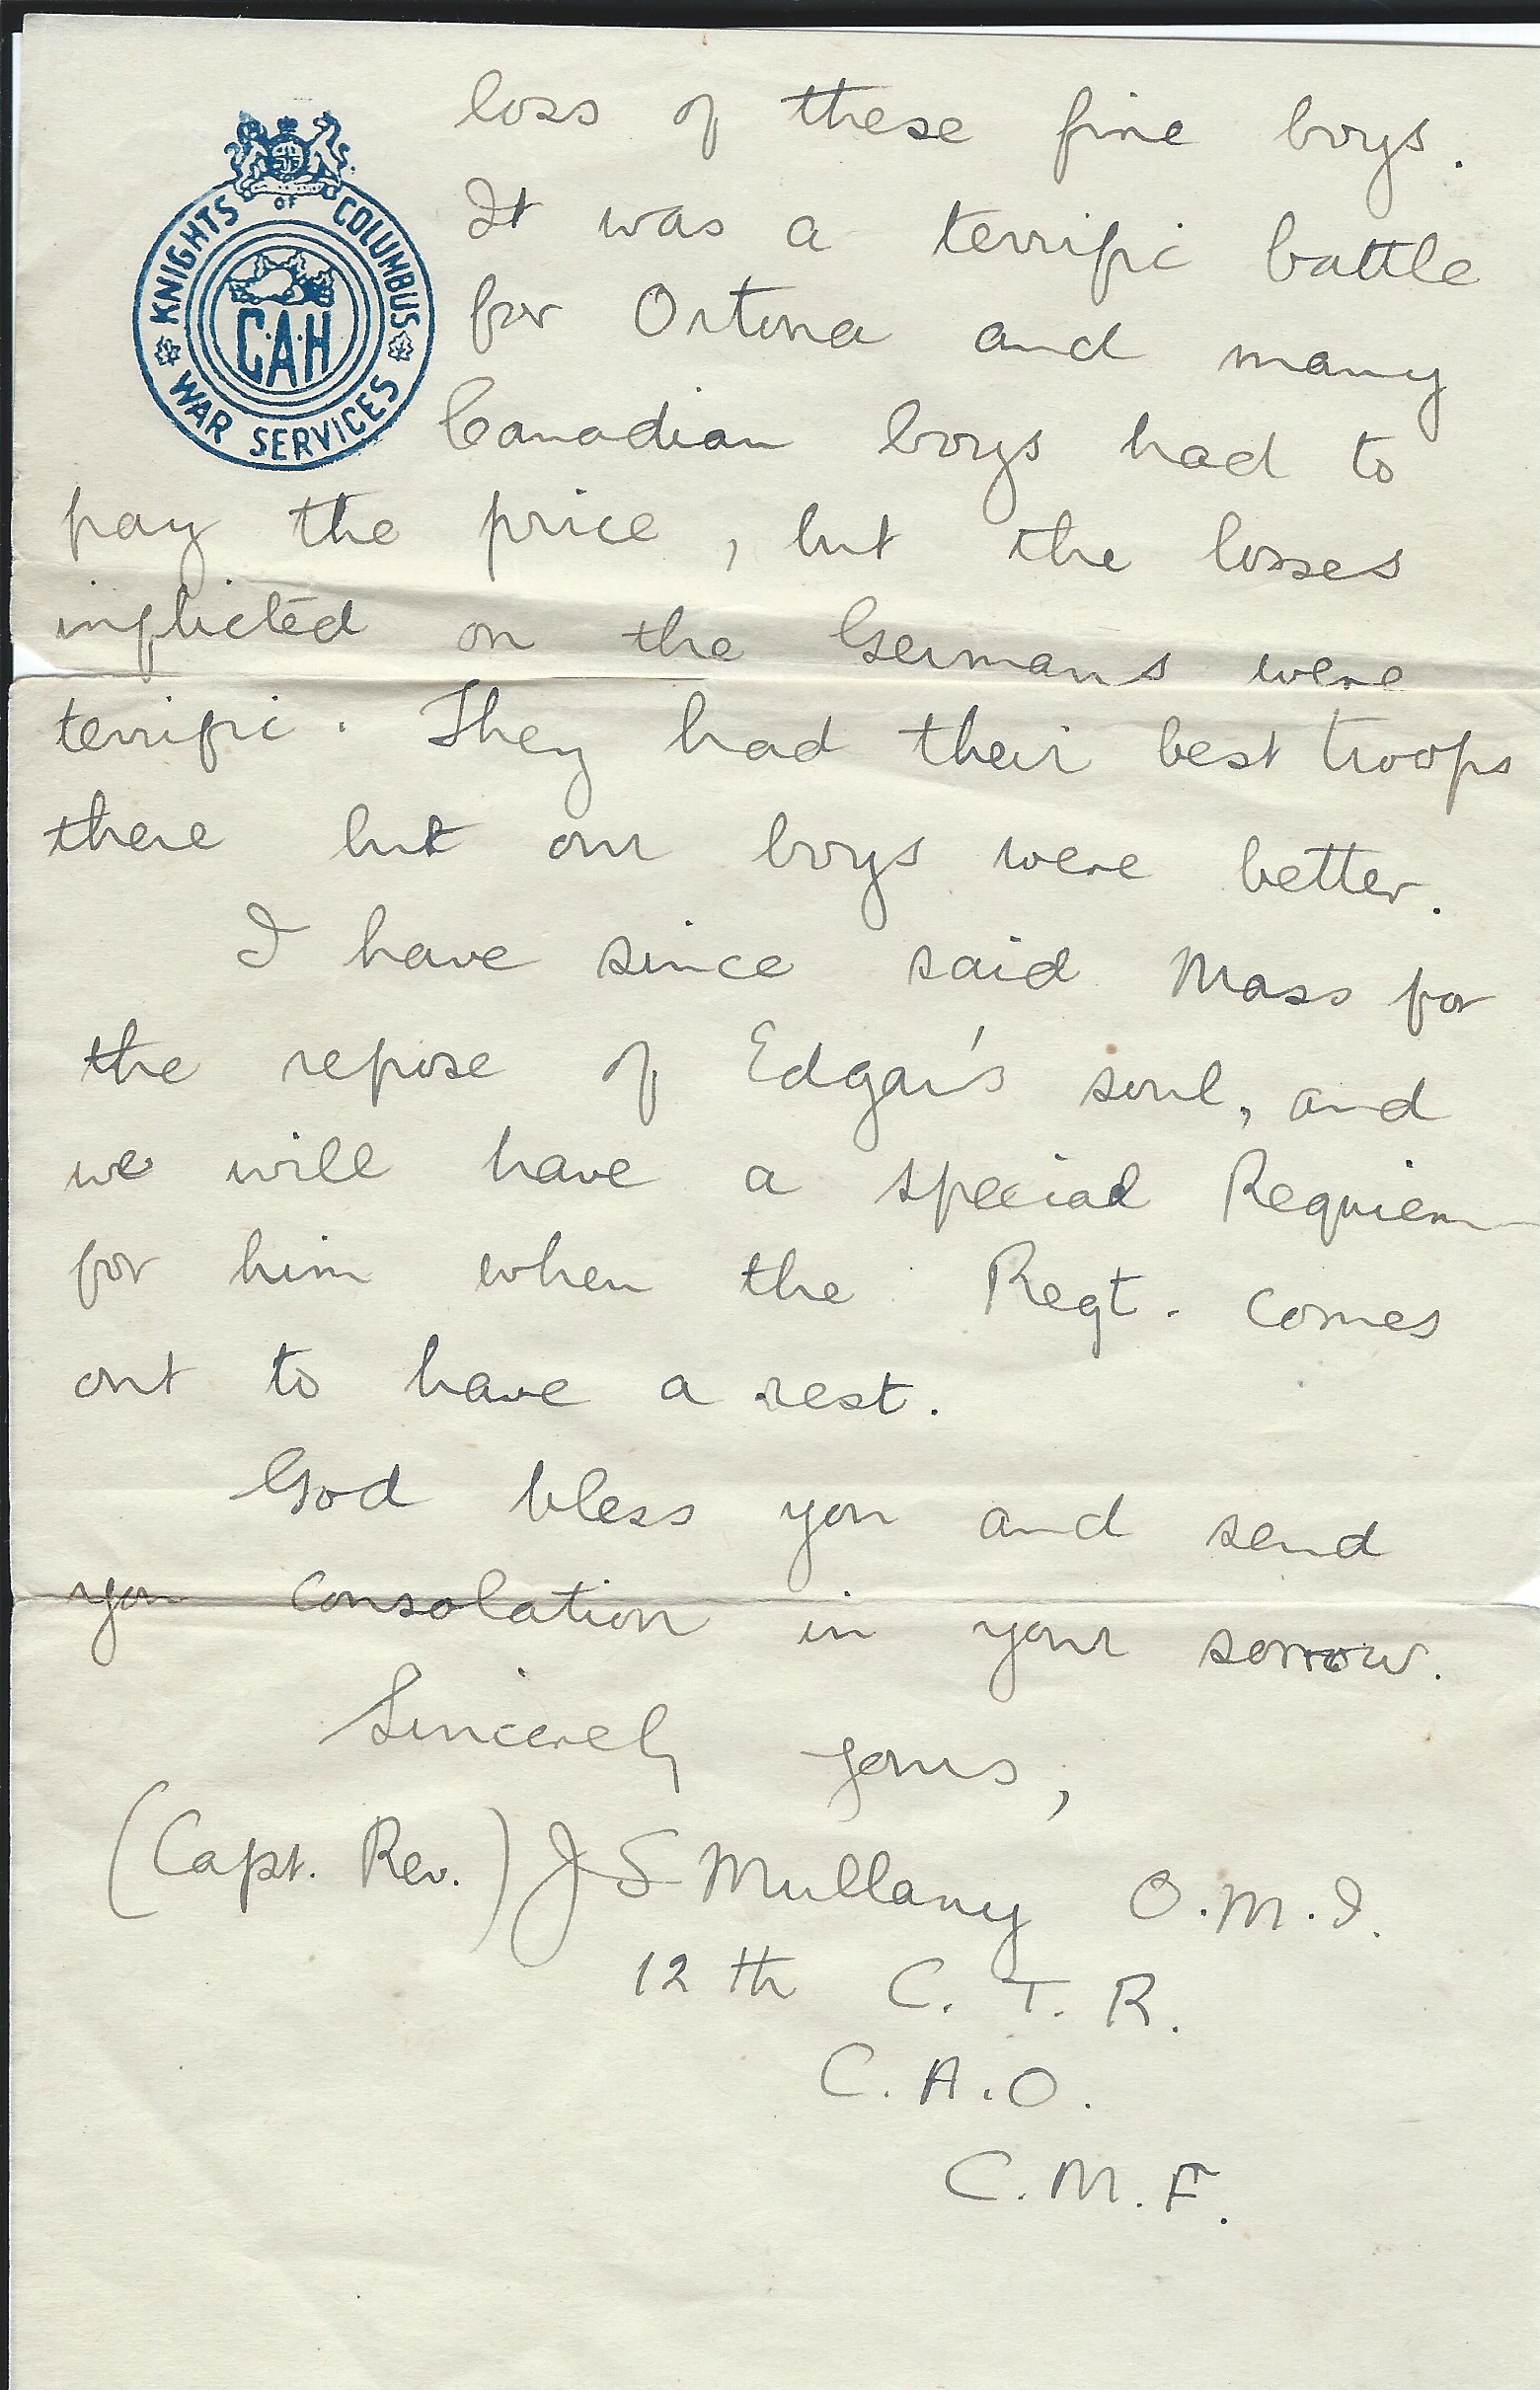 KNIGHTS OF COLUMBUS
C·A·H
WAR SERVICES
loss of these fine boys.
It was a terrific battle
for Ortona and many
Canadian boys had to
pay the price, but the losses
inflicted on the Germans were
terrific. They had their best troops
there but our boys were better.
I have since said Mass for
the repose of Edgar's soul, and
we will have a special Requiem
for him when the Regt. comes
out to have a rest.
God bless you and send
you consolation in your sorrow.
Sincerely yours,
(Capt. Rev.) J S Mullany O.M.I.
12th C. T. R.
C. A. O.
C. M. F.